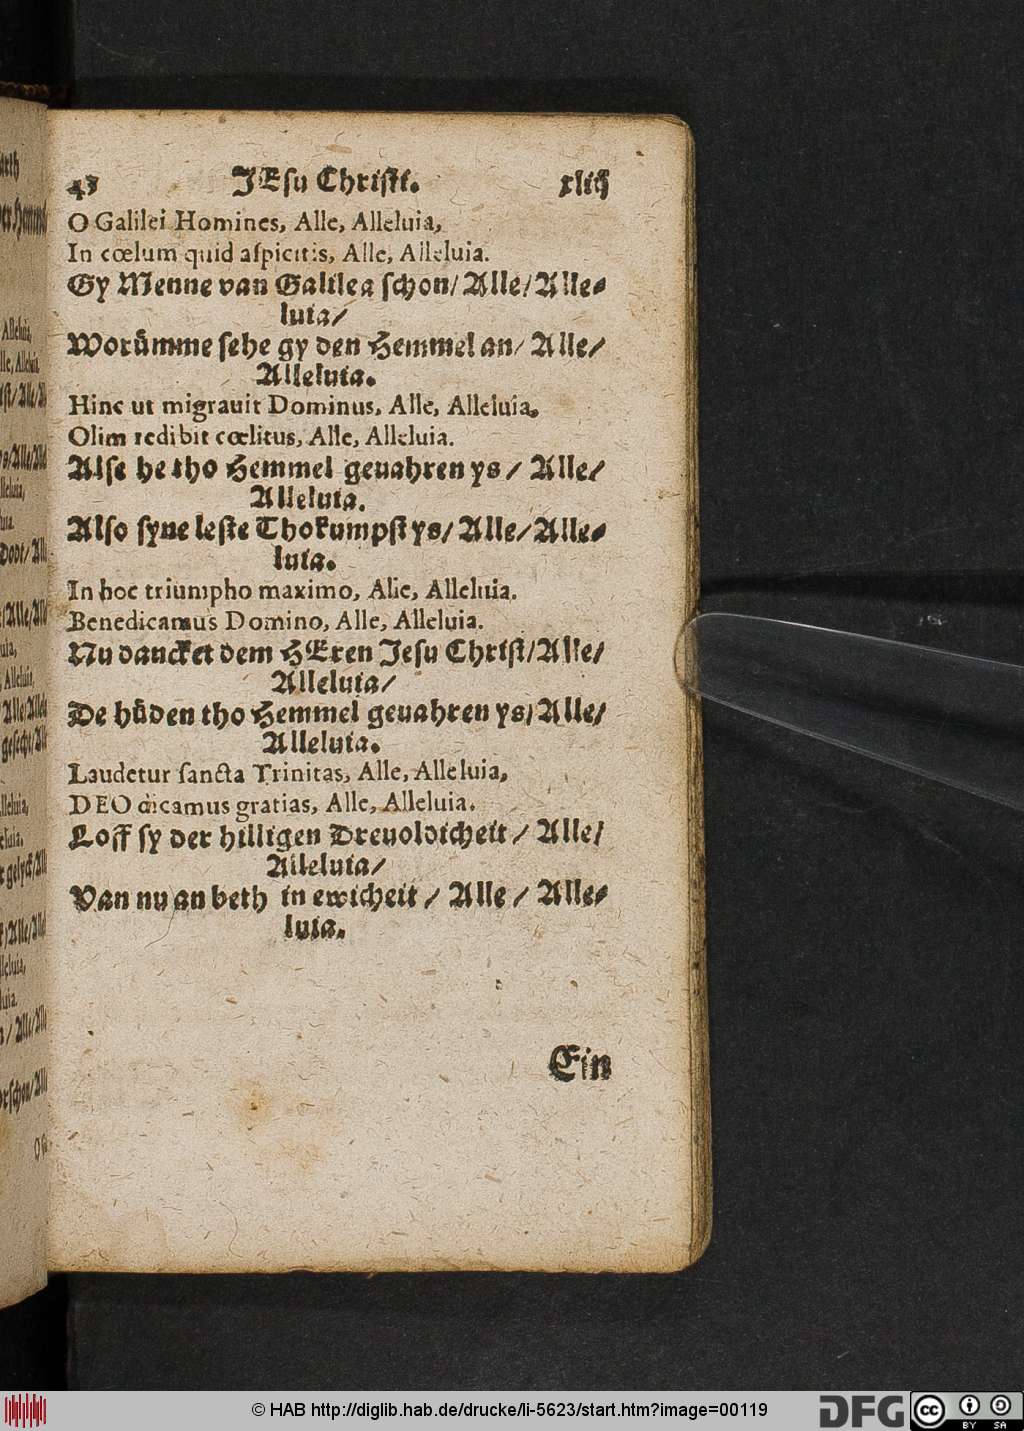 43 JEsu Christi. xliij
O Galilei Homines, Alle, Alleluia,
In cœlum quid aſpicitis, Alle, Alleluia.
Gy Menne van Galilea ſchon/ Alle/ Alle-
luia/
Worümme ſehe gy den Hemmel an/ Alle/
Alleluia.
Hinc ut migravit Dominus, Alle, Alleluia.
Olim redibit cœlitus, Alle, Alleluia.
Alſe he tho Hemmel gevahren ys/ Alle/
Alleluia.
Alſo ſyne leſte Thokumpſt ys/ Alle/ Alle-
luia.
In hoc triumpho maximo, Alle, Alleluia.
Benedicamus Domino, Alle, Alleluia.
Nu dancket dem HEren Jeſu Chriſt/ Alle/
Alleluia/
De hüden tho Hemmel gevahren ys/ Alle/
Alleluia.
Laudetur ſancta Trinitas, Alle, Alleluia,
DEO dicamus gratias, Alle, Alleluia.
Loff ſy der hilligen Drevoldicheit/ Alle/
Alleluia/
Van nu an beth in ewicheit/ Alle/ Alle-
luia.
Ein
© HAB http://diglib.hab.de/drucke/li-5623/start.htm?image=00119
DFG
cc BY SA